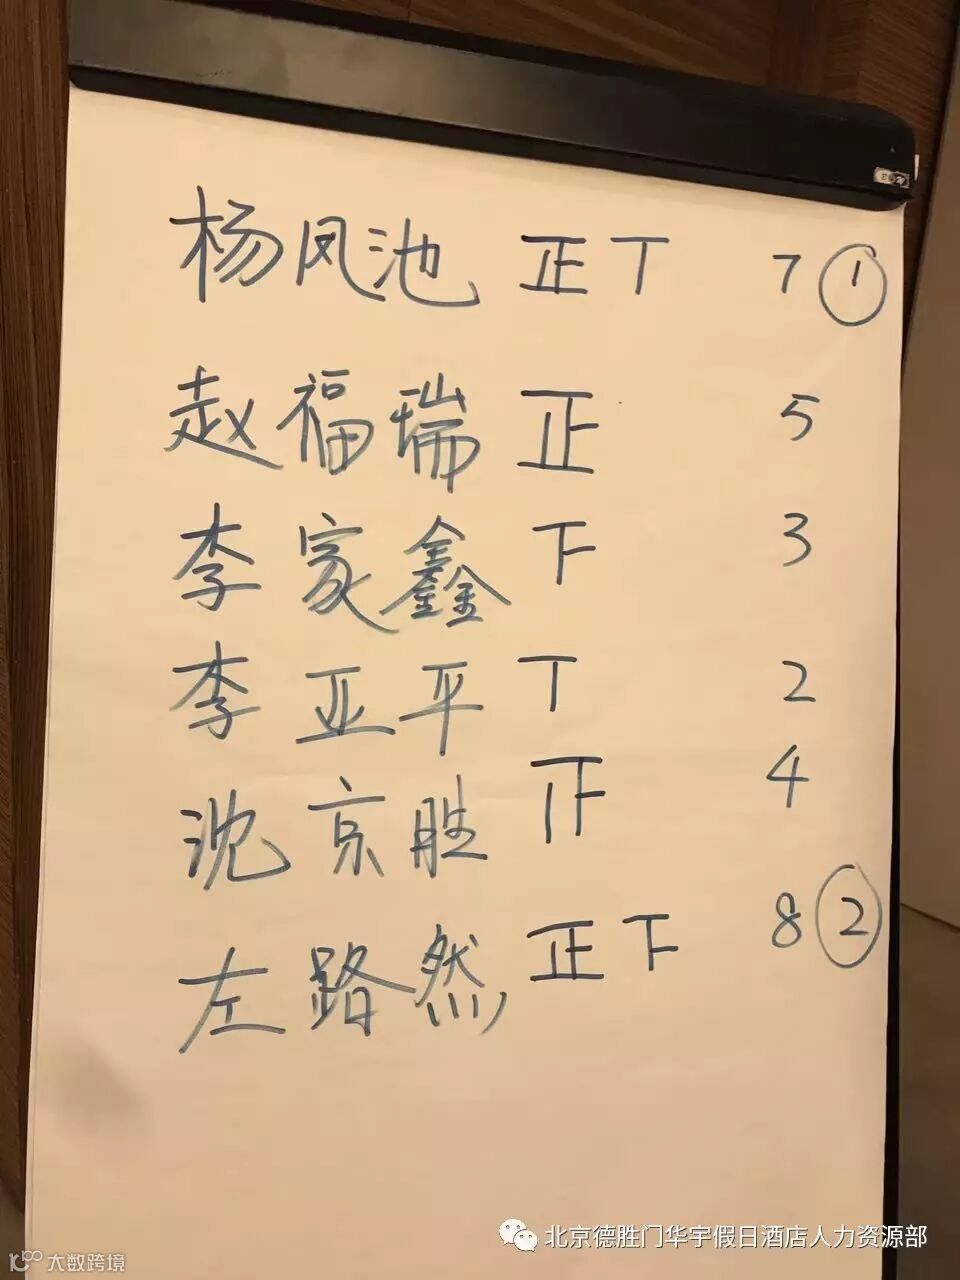 杨凤池 正丅 7 ①
赵福瑞 正 5
李家鑫 下 3
李亚平 丅 2
沈京胜 𤴓 4
左路然 正下 8 ②
北京德胜门华宇假日酒店人力资源部
大数跨境